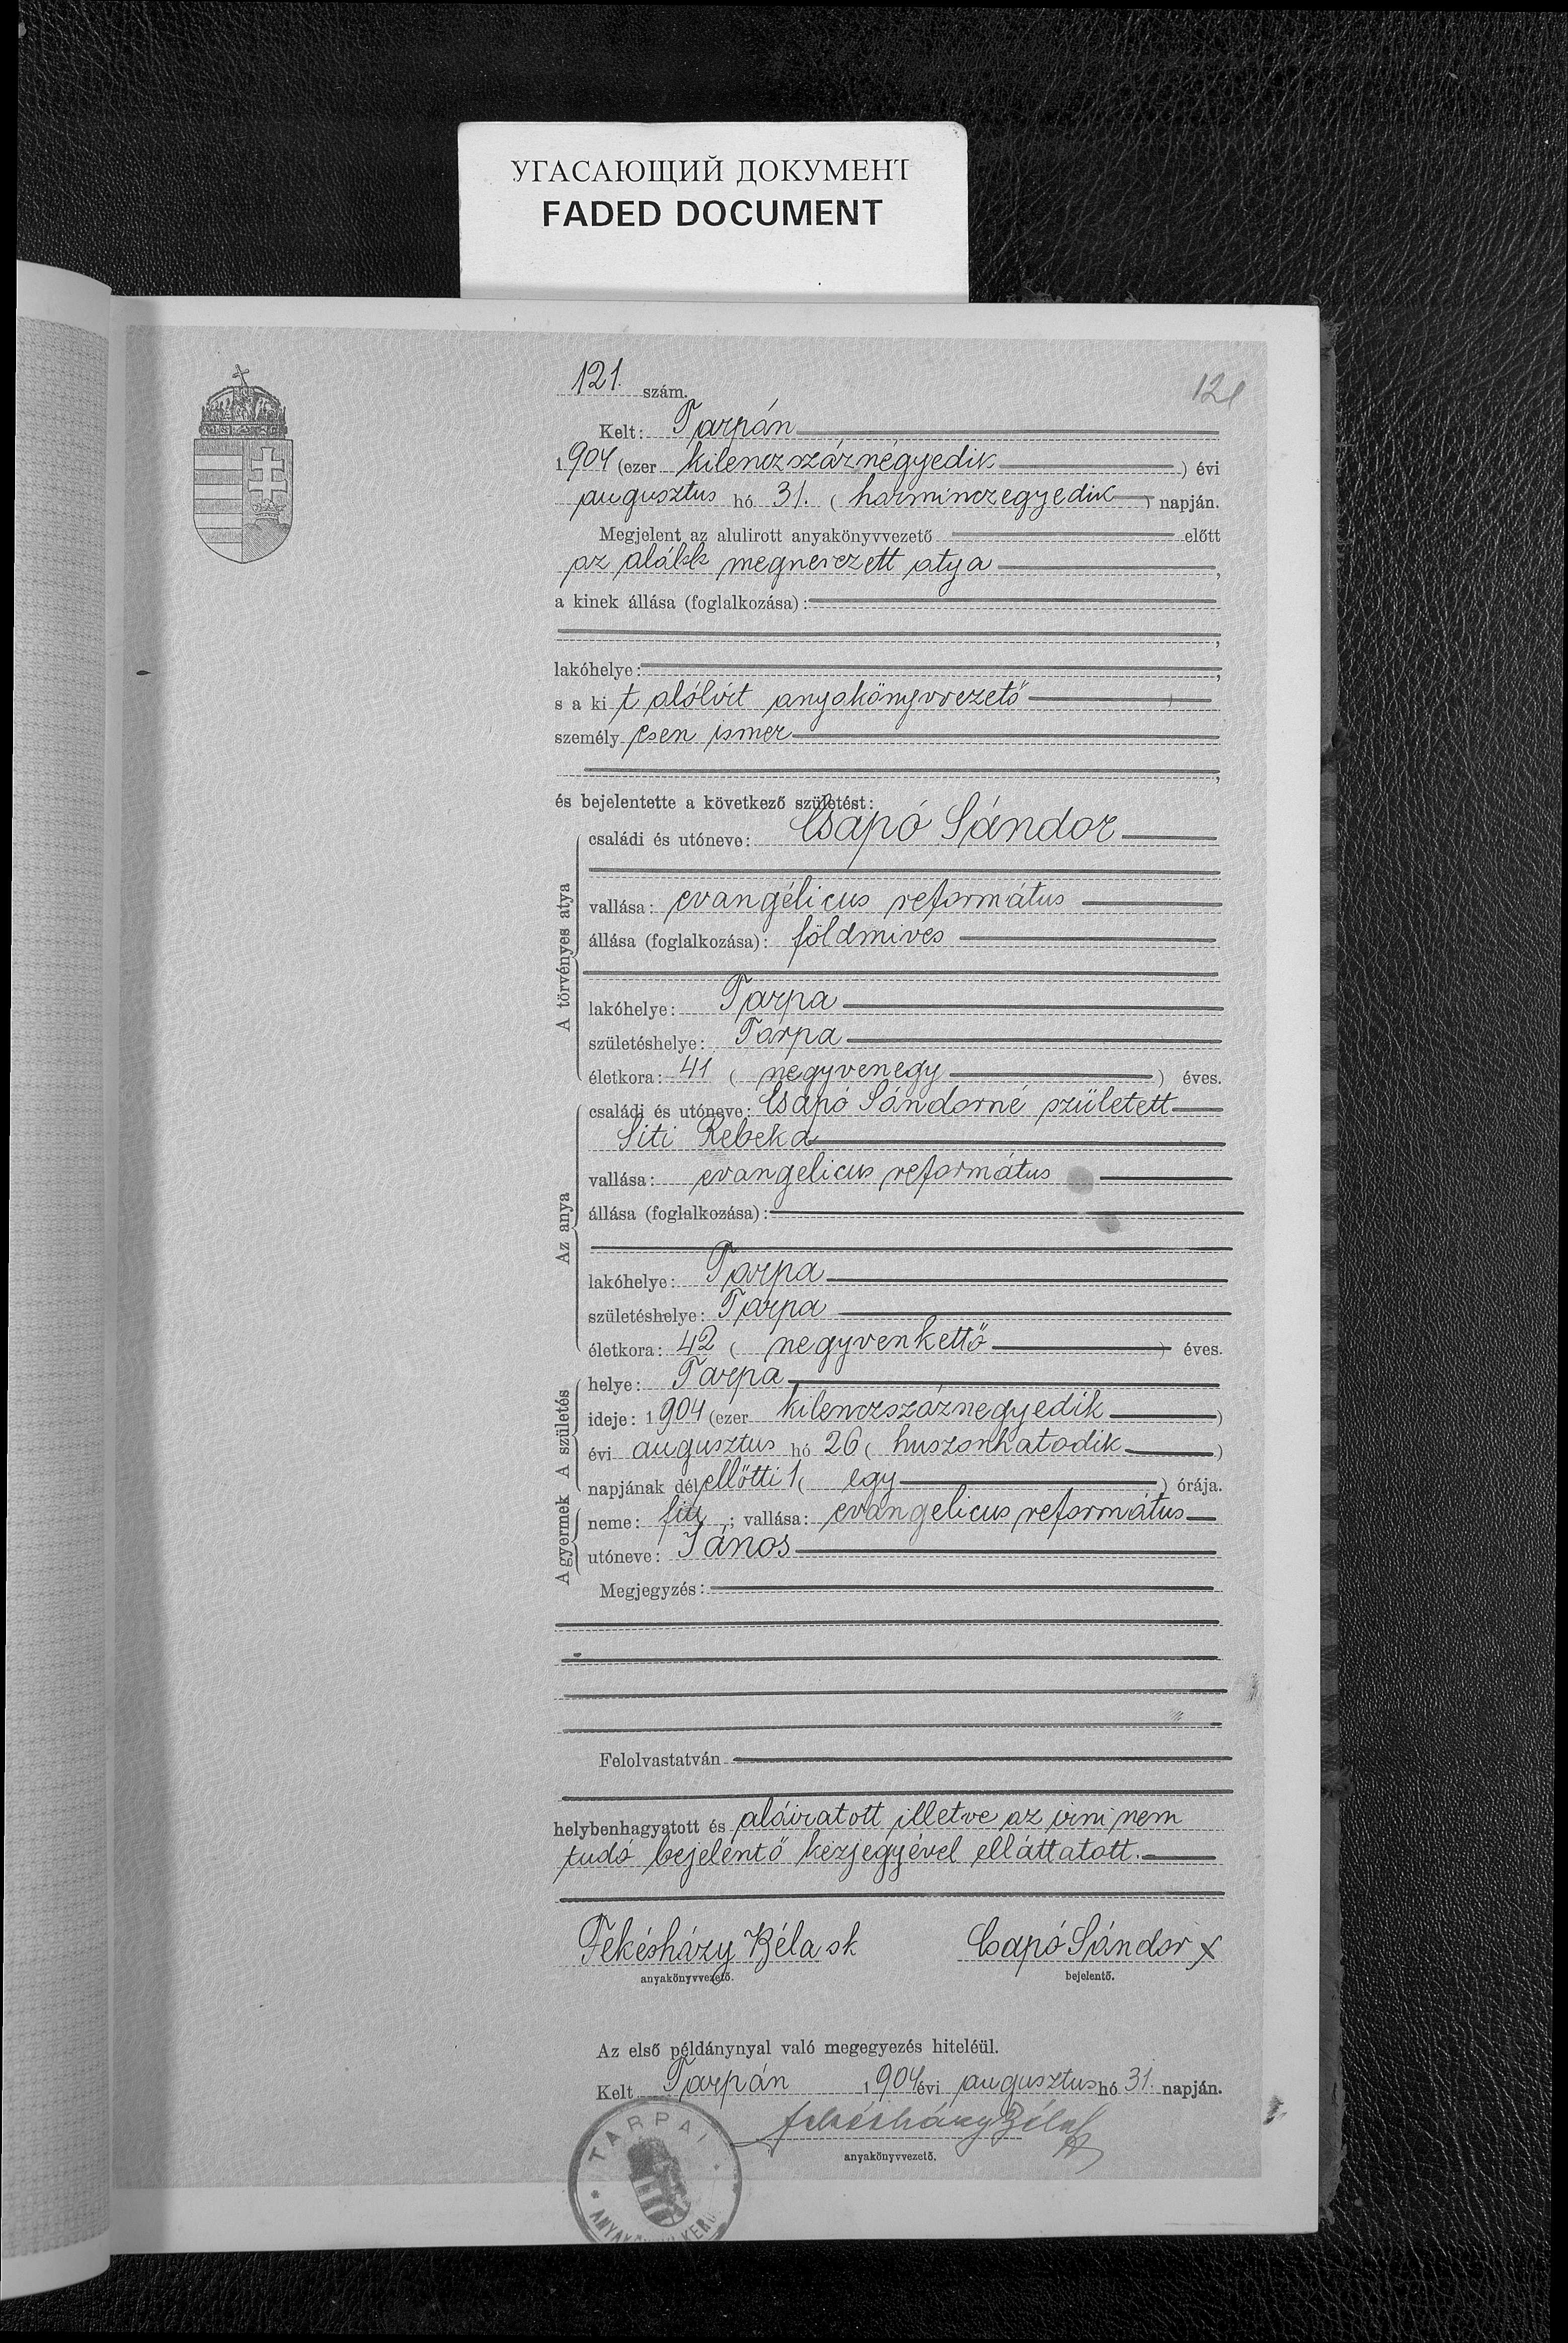 УГАСАЮЩИЙ ДОКУМЕНТ
FADED DOCUMENT
121. szám.
121
Kelt: Tarpán
1904 (ezer kilenczszáznégyedik) évi
augusztus hó 31. (harminczegyedik) napján.
Megjelent az alulirott anyakönyvvezető előtt
az alább megnevezett atya,
a kinek állása (foglalkozása):
,
lakóhelye: ,
s a kit alólírt anyakönyvvezető
személyesen ismer
,
és bejelentette a következő születést:
A törvényes atya
családi és utóneve: Csapó Sándor
vallása: evangélicus református
állása (foglalkozása): földmíves
lakóhelye: Tarpa
születéshelye: Tarpa
életkora: 41 (negyvenegy) éves.
Az anya
családi és utóneve: Csapó Sándorné született
Siti Rebeka
vallása: evangelicus református
állása (foglalkozása):
lakóhelye: Tarpa
születéshelye: Tarpa
életkora: 42 (negyvenkettő) éves.
A születés
helye: Tarpa
ideje: 1904 (ezer kilenczszáznegyedik)
évi augusztus hó 26 (huszonhatodik)
napjának délellőtti 1 (egy) órája.
A gyermek
neme: fiu; vallása: evangelicus református
utóneve: János
Megjegyzés:
Felolvastatván
helybenhagyatott és aláiratott illetve az irni nem
tudó bejelentő kézjegyével elláttatott.
Fekésházy Béla sk Csapó Sándor x
anyakönyvvezető. bejelentő.
Az első példánynyal való megegyezés hiteléül.
Kelt Tarpán 1904 évi augusztus hó 31. napján.
Fekésházy Béla
anyakönyvvezető.
TARPAI